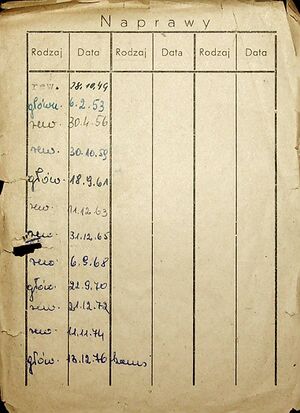 Naprawy
Rodzaj Data Rodzaj Data Rodzaj Data
rew. 28.10.49
główn. 6.2.53
rew. 30.4.56
rew. 30.10.59
głów. 18.9.61
rew. 11.12.63
rew. 31.12.65
rew. 6.9.68
głów. 21.9.70
rew. 21.12.72
rew. 11.11.74
głów. 13.12.76